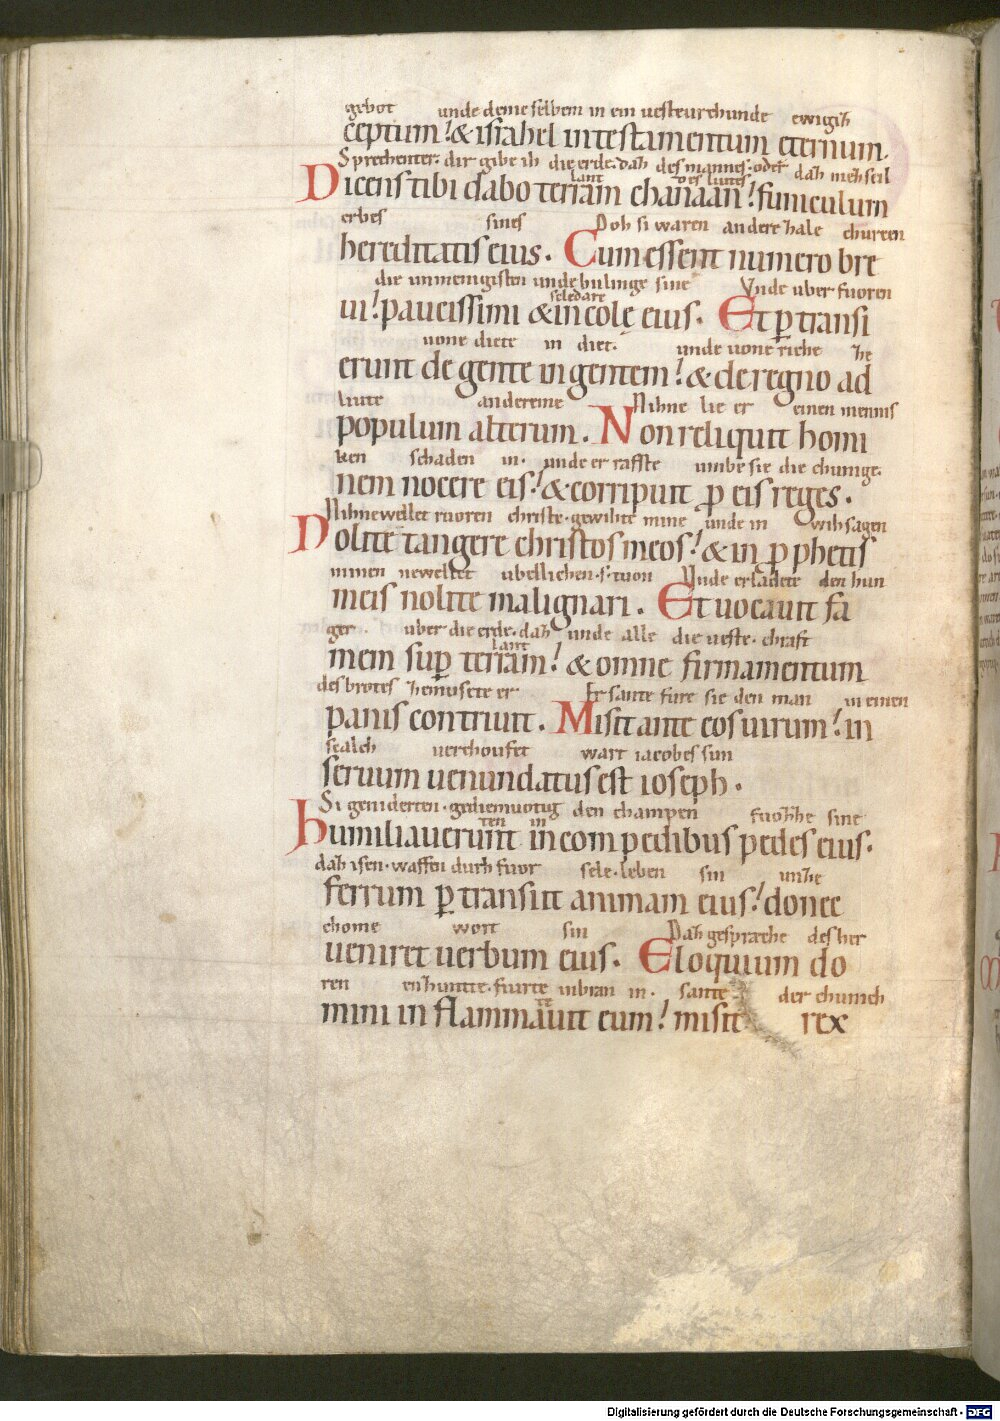 gebot unde deme selbem in ein uesteurchunde ewigiħ
ceptum! & israhel intestamentum eternum.
Sprechenter. dir gibe iħ die erde. daħ des mannes. oder daħ meħseil
lant des liutes
Dicens tibi dabo terram chanaan! funiculum
erbes sines Doħ si waren andere ħale churcen
hereditatis eius. Cum essent numero bre
die unmenigisten unde bulinge sine Vnde uber fuoren
seledare
ui! paucissimi & incolę eius. Et ꝑ transi
uone diete in diet. unde uone riche ħe
erunt de gente in gentem! & de regno ad
liute andereme Niħne lie er einen mennis
populum alterum. Non reliquit homi
ken schaden in. unde er raffste umbe sie die chunige.
nem nocere eis! & corripuit ꝑ eis reges.
Niħnewellet ruoren christe. gewihte mine unde in wihsagen
Nolite tangere christos meos! & in ꝑphetis
minen newellet ubellichen. s. tuon Vnde er ladete den hun
meis nolite malignari. Et uocauit fa
ger uber die erde. daħ unde alle die ueste. chraft
lant
mem suꝑ terram! & omne firmamentum
des brotes ħemuscte er Er sante fure sie den man in einen
panis contriuit. Misit ante eos uirum! in
scalch uerchoufet wart iacobes sun
seruum uenundatus est ioseph.
Si geniderten. gediemuotig den champen fuoħħe sine
ten in
humiliauerunt in compedibus pedes eius.
daħ isen. waffen durħ fuor sele. leben sin unħe
ferrum ꝑ transiit animam eius! donec
chome wort sin Daħ gesprache des her
ueniret uerbum eius. Eloquium do
ren enħuntte. fiurte inbran in. sante der chunich
te
mini in flammauit eum! misit rex
Digitalisierung gefördert durch die Deutsche Forschungsgemeinschaft - DFG